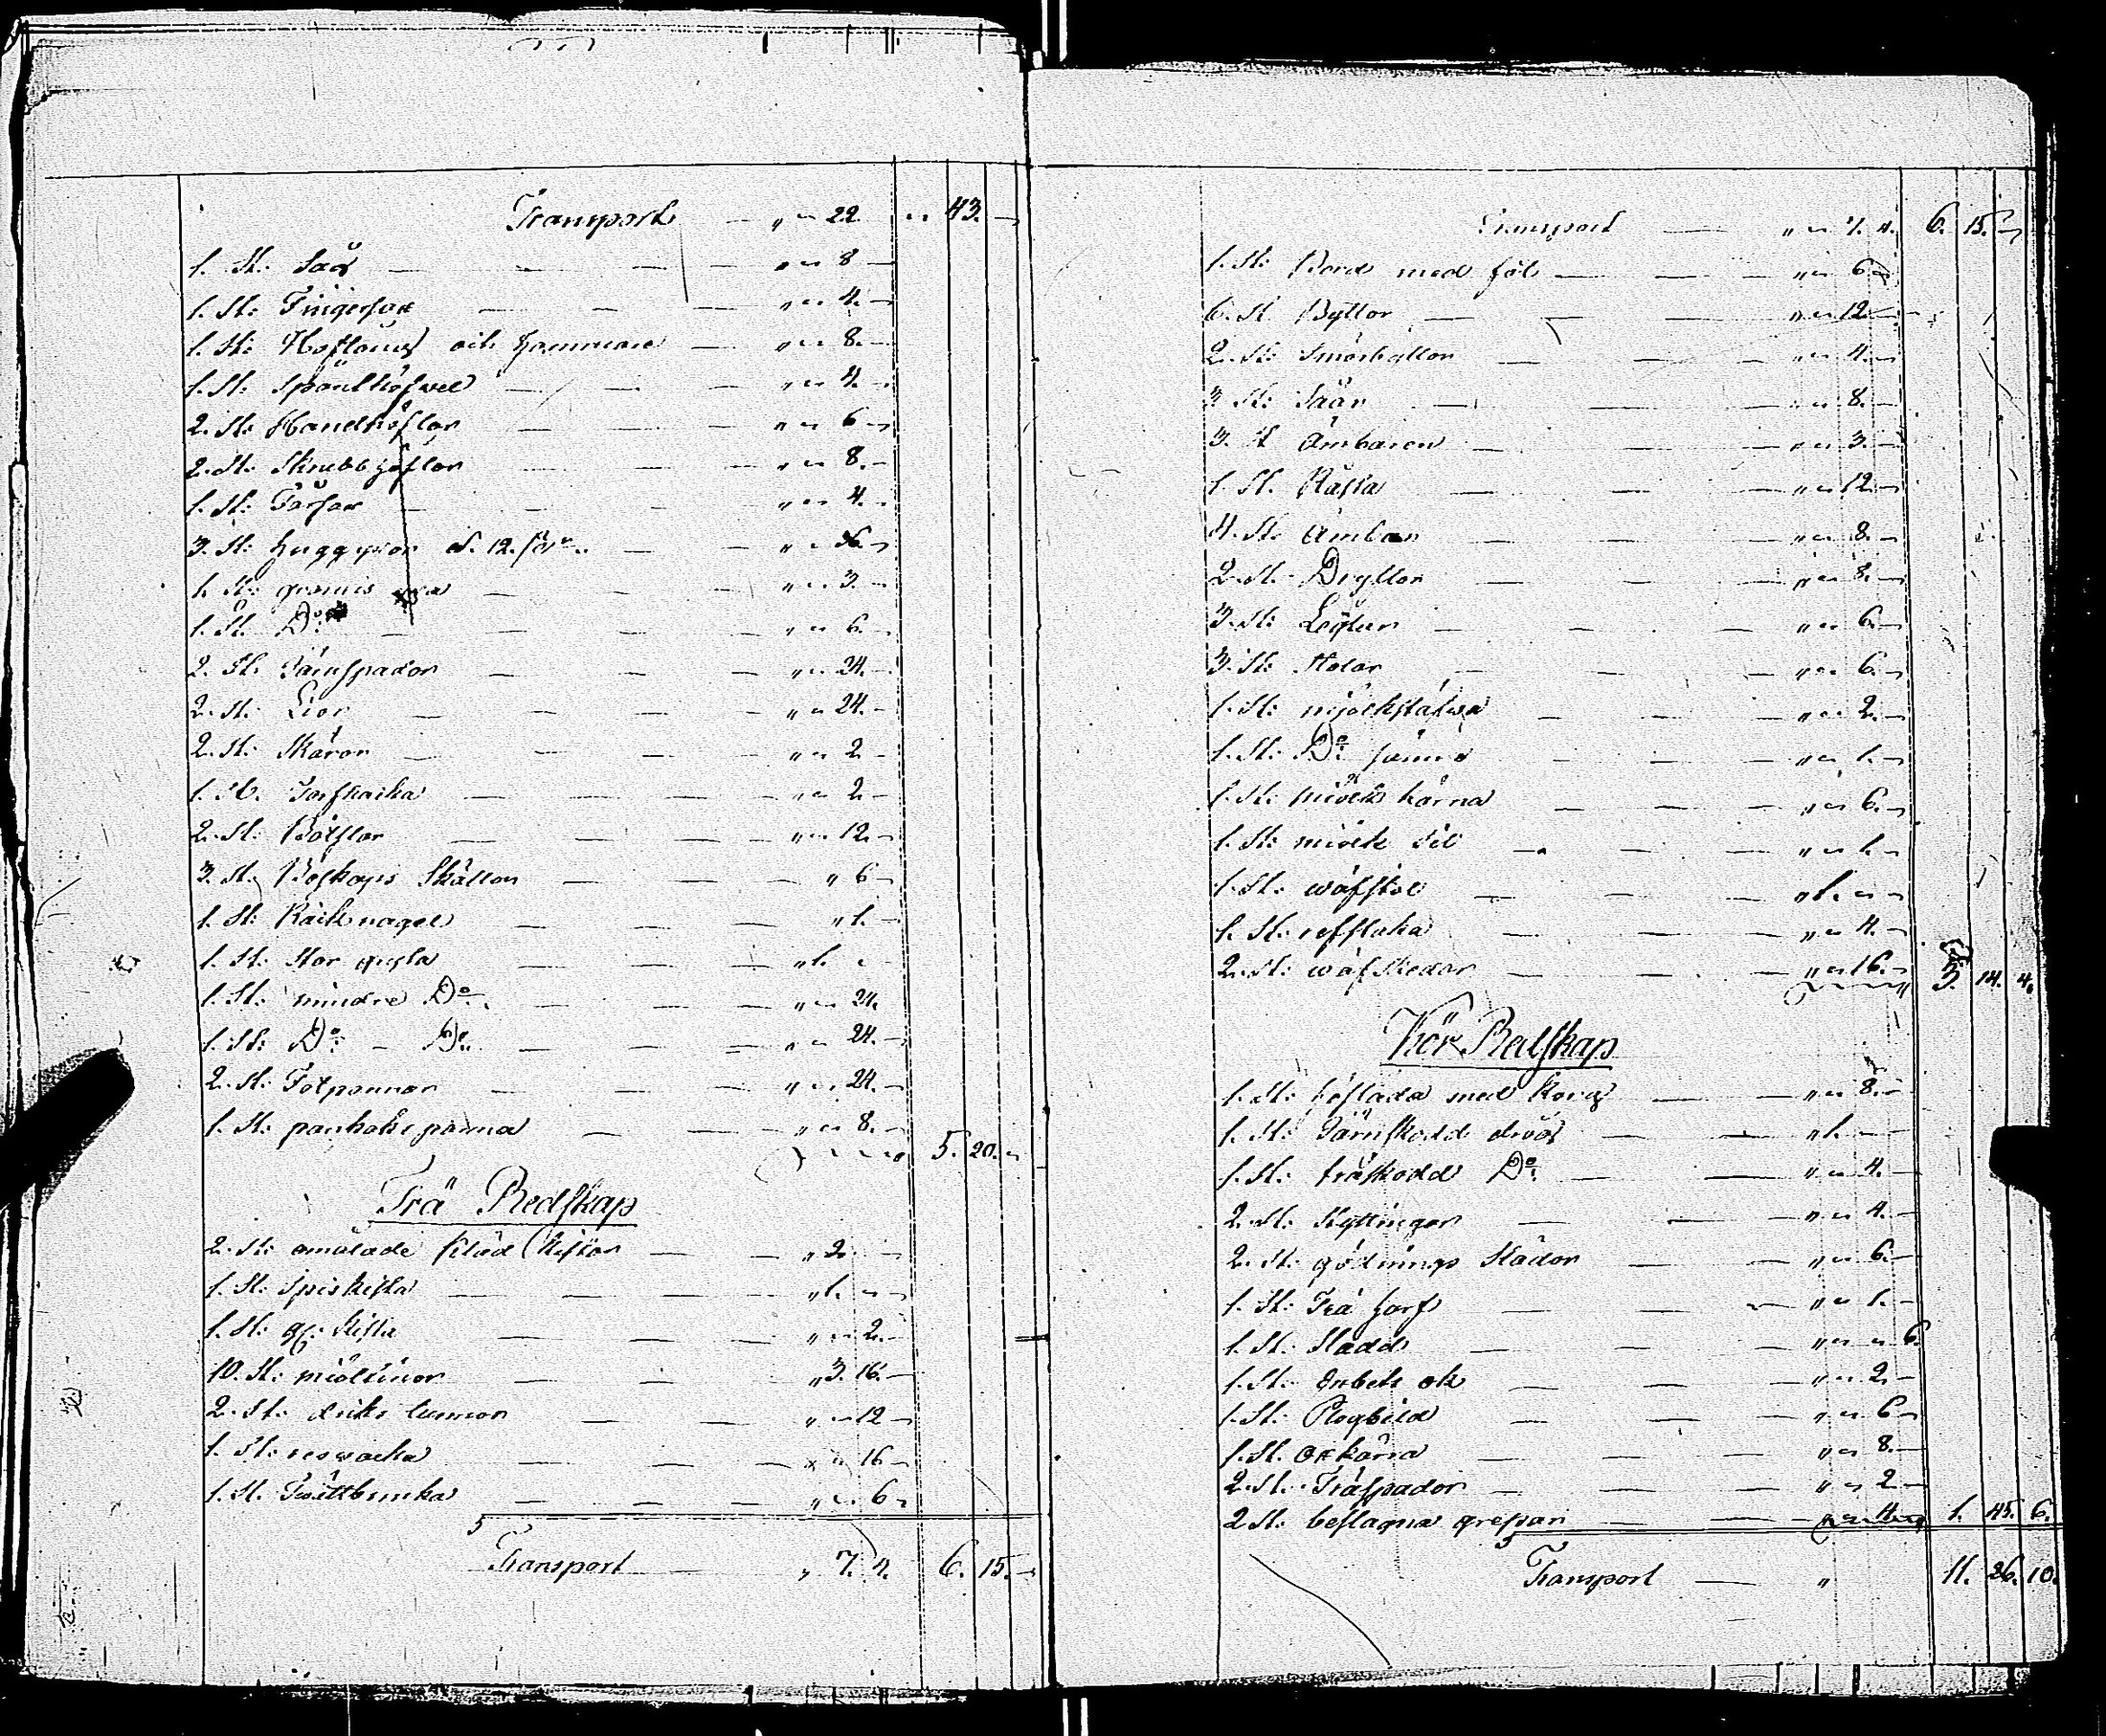 Transport — " " 22. " " 43. —
1. St: Såg — " " 8 —
1. St: — " " 4. —
1. St: Hoftång och hammare — " " 8. —
1. St: — " " 4. —
2. St: Handhöflar — " " 6 —
2. St: Skrubb höflar — " " 8. —
1. St: — " " 4. —
3. St: huggyxor d. 12. — " " 36. —
1. St: yxa — " " 3. —
1. St. Do: — " " 6. —
2. St. Järnspador — " " 24. —
2. St: Lior — " " 24. —
2. St: Skäror — " " 2 —
1. St. Torfhacka — " " 2 —
2. St: — " " 12. —
3. St: Boskaps Skällor — " 6 —
1. St: nagel — " 1. —
1. St: Stor gryta — " 1. "
1. St: mindre Do. — " " 24.
1. St: Do: — Do: — " " 24. —
2. St: Fotpannor — " " 24. —
1. St: pankaks panna — " " 8. —
5. 20. —
Trä Redskap
2. St: omålade Kläd Kistor — " 2. —
1. St: Spiskista — " 1. " —
1. St: gl: Kista — " " 2. —
10. St: — " 3. 16. —
2. St: driks — " " 12 —
1. St: — " " 16 —
1. St. Twättbunka — " " 6 —
Transport — " 7. 4. 6. 15. —
Transport — " " 7. 4. 6. 15. —
1. St: Bord med — " " 6 —
6. St Byttor — " " 12. —
2. St: Smörbyttor — " " 4. —
3 St: Såar — " " 8. —
3. St Ämbaren — " " 3. —
1. St. — " " 12. —
4. St. Ämbar — " " 8. —
2. St: Dryllor — " " 8. —
3. St: Läglar — " " 6. —
3. St: Stolar — " " 6. —
1. St: — " " 2. —
1. St: Do — " " 1. —
1. St: miölk kärna — " " 6. —
1. St: miölk Sil — " " 1. —
1. St: wäfstol — " 1. " —
1. St: — " " 4. —
2. St: wäfskedar — " " 16. — 3. 14. 4.
Kör Redskap
1. St: med Korg — " " 8. —
1. St: Järnskodd — " 1. —
1. St: träskodd Do: — " " 4. —
2. St: Kyttingar — " " 4. —
2. St: gödnings Slädor — " " 6. —
1. St: Trä harf — " " 1. —
1. St. Sladd — " " " 6.
1. St: Enbets ok — " " 2. —
1. St: Plogbild — " " 6 —
1. St. oxkärra — " " 8. —
2. St. Träspador — " " 2 —
2 St: beslagna grepar — " " 4. — 1. 45. 6.
Transport — " 11. 26. 10.